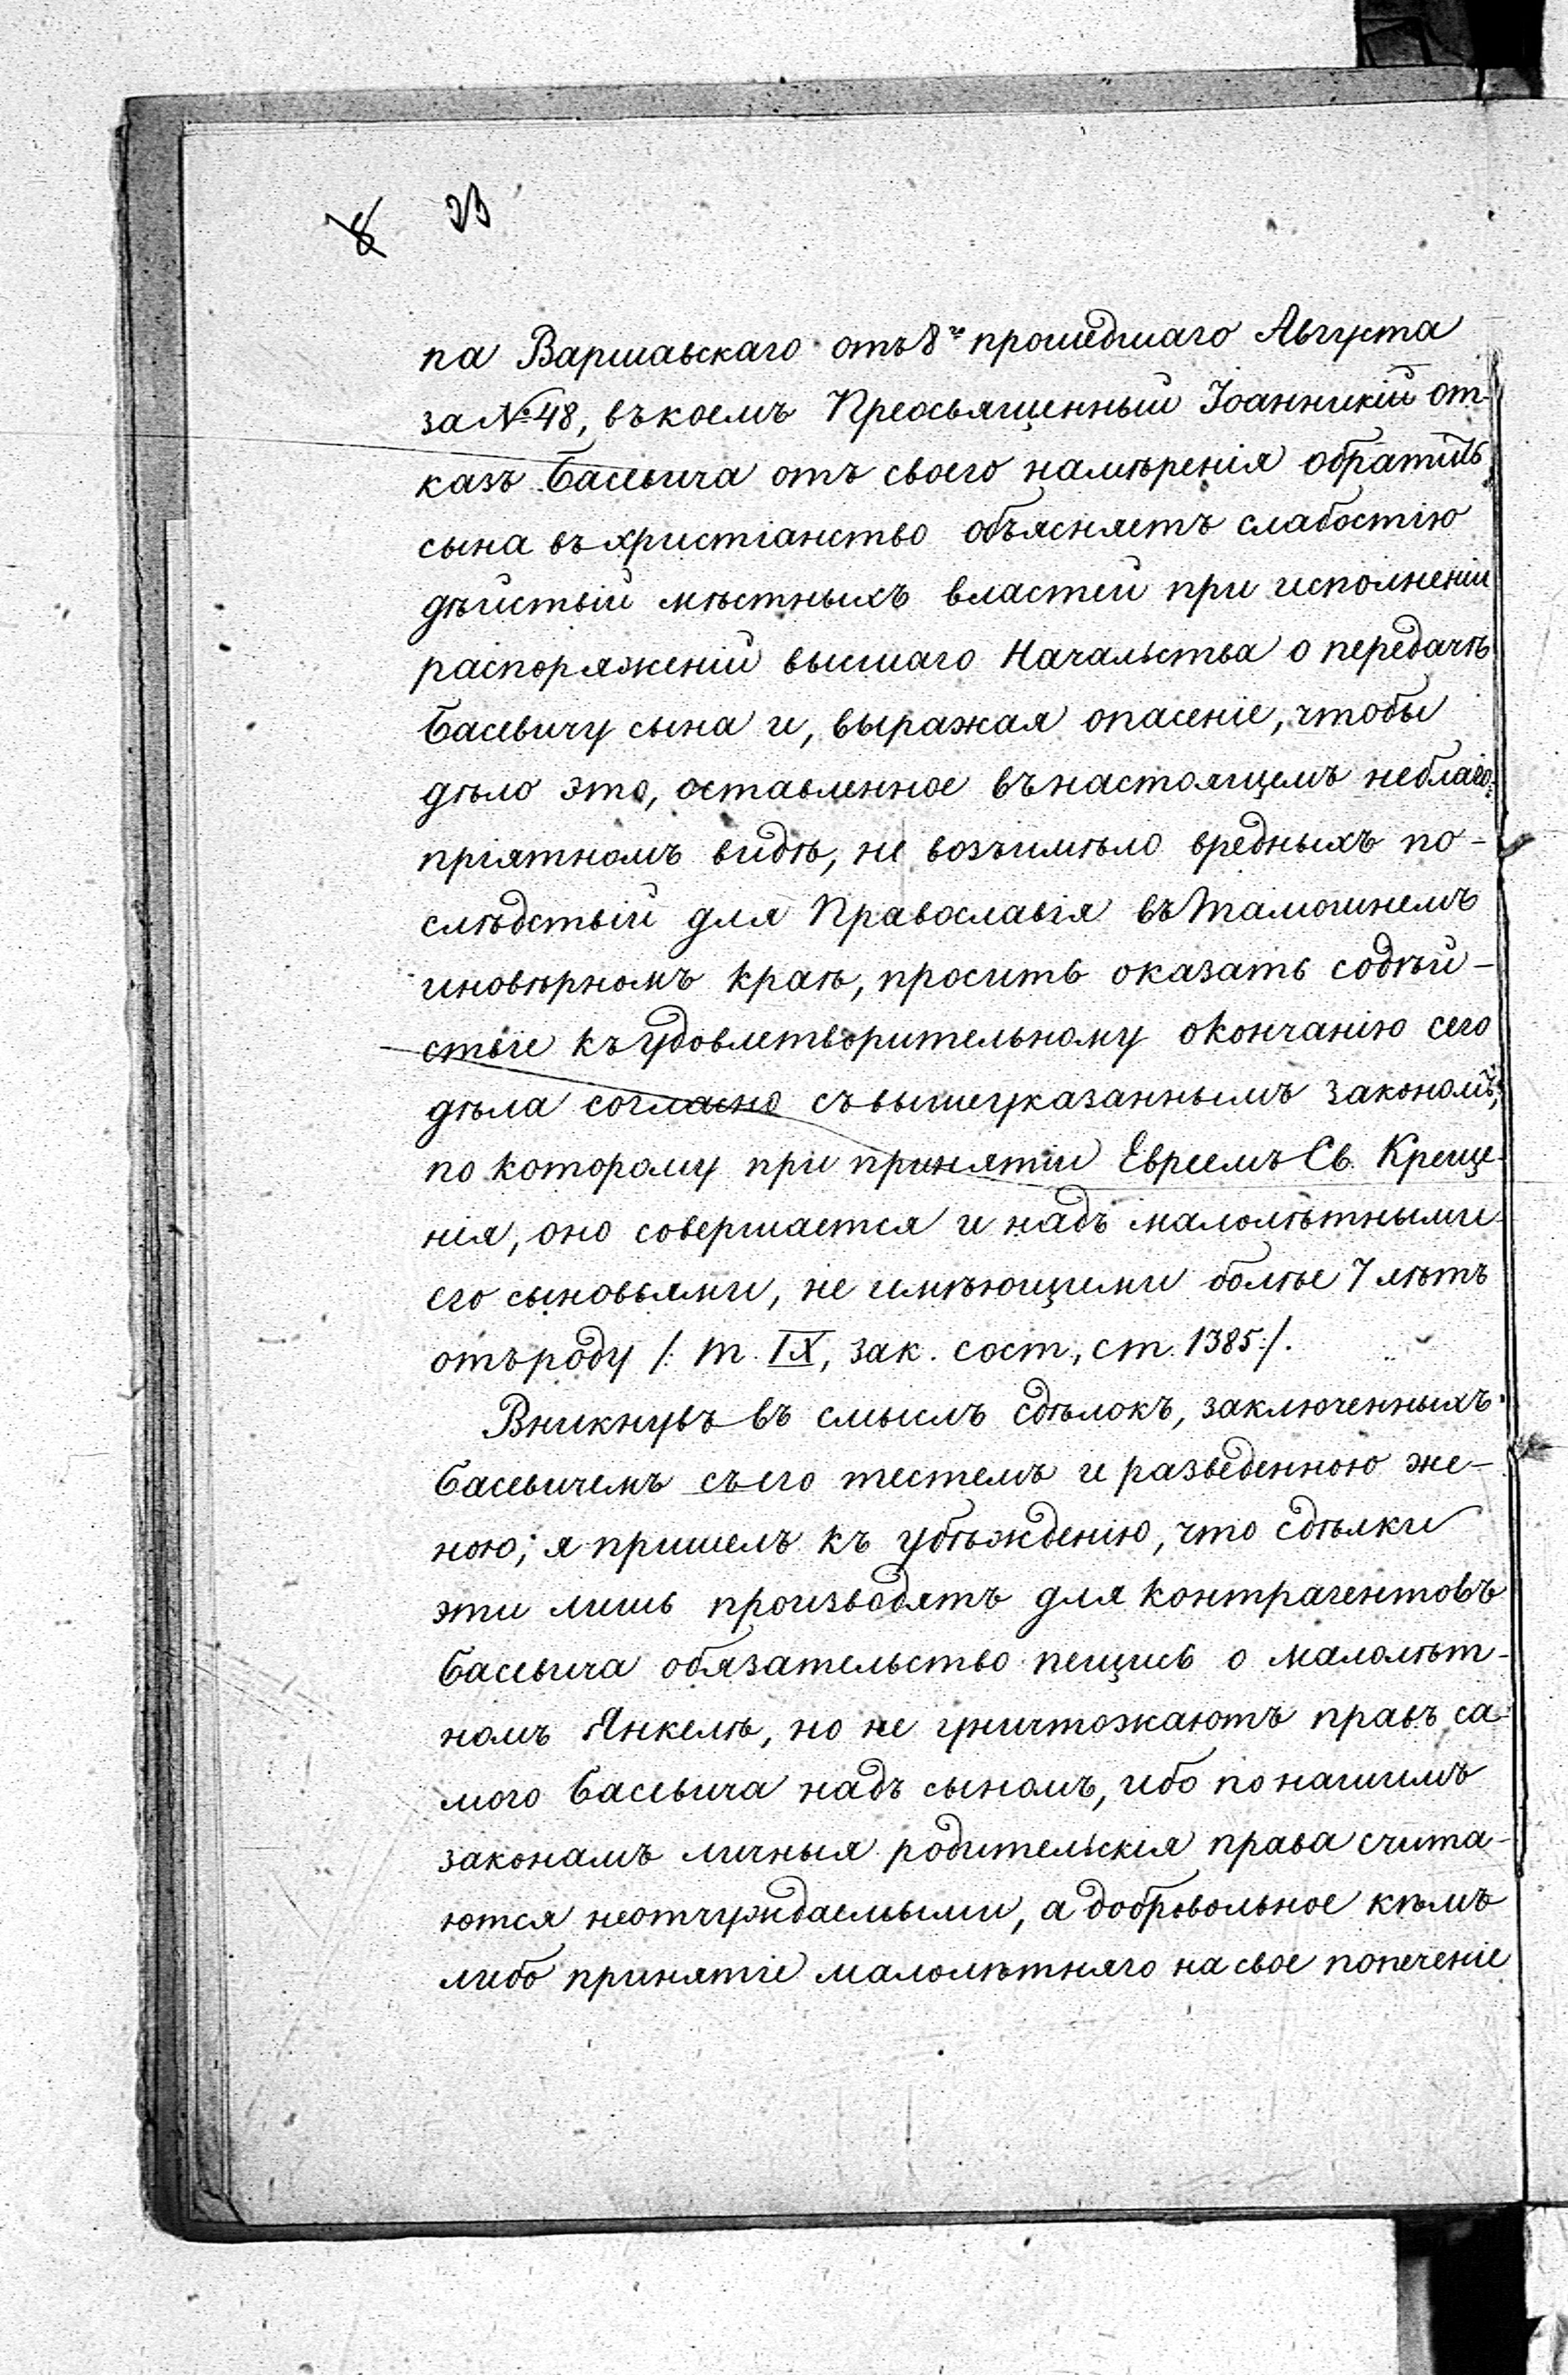 8 23
па Варшавскаго отъ 8го прошедшаго Августа
за № 48, въ коемъ Преосвященный Іоанникій от-
казъ Басевича отъ своего намѣренія обратить
сына въ христіанство объясняетъ слабостію
дѣйствій мѣстныхъ властей при исполненіи
распоряженій высшаго Начальства о передачѣ
Басевичу сына и, выражая опасеніе, чтобы
дѣло это, оставленное въ настоящемъ неблаго-
пріятномъ видѣ, не возъимѣло вредныхъ по-
слѣдствій для Православія въ тамошнемъ
иновѣрномъ краѣ, проситъ оказать содѣй-
ствіе къ удовлетворительному окончанію сего
дѣла согласно съ вышеуказаннымъ закономъ,
по которому при принятіи Евреемъ Св. Креще-
нія, оно совершается и надъ малолѣтными
его сыновьями, не имѣющими болѣе 7 лѣтъ
отъ роду /: т. IX, зак. сост., ст. 1385 :/.
Вникнувъ въ смыслъ сдѣлокъ, заключенныхъ
Басевичемъ съ его тестемъ и разведенною же-
ною, я пришелъ къ убѣжденію, что сдѣлки
эти лишь производятъ для контрагентовъ
Басевича обязательство пещись о малолѣт-
номъ Янкелѣ, но не уничтожаютъ правъ са-
мого Басевича надъ сыномъ, ибо по нашимъ
законамъ личныя родительскія права счита-
ются неотчуждаемыми, а добровольное кѣмъ
либо принятіе малолѣтняго на свое попеченіе